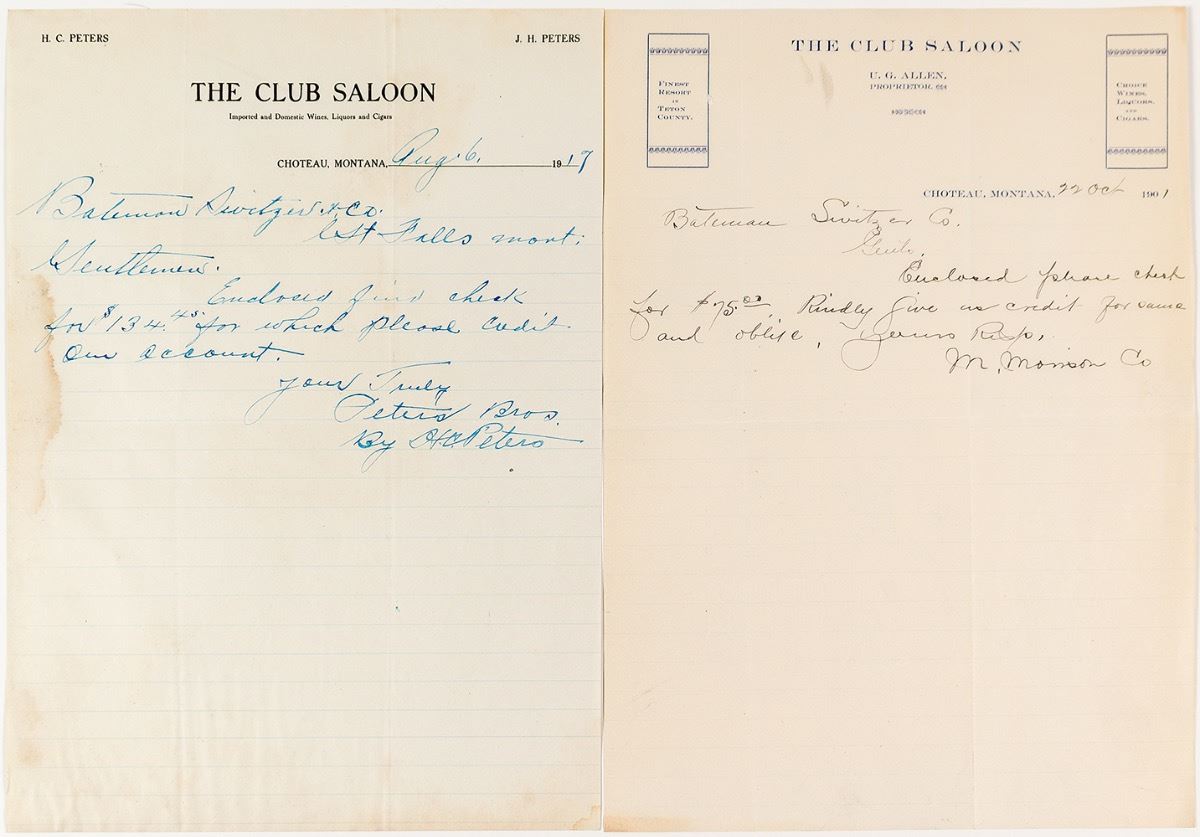 H. C. PETERS
J. H. PETERS
THE CLUB SALOON
Imported and Domestic Wines, Liquors and Cigars
CHOTEAU, MONTANA, Aug. 6. 1917
Bateman Switzer & Co.
Falls mont.
Gentlemen.
Enclosed find check
for $134.45 for which please credit
our account.
your Truly
Peters Bros.
By H.C. Peters
FINEST
RESORT
IN
TETON
COUNTY.
THE CLUB SALOON
U. G. ALLEN,
PROPRIETOR.
CHOICE
WINES,
LIQUORS,
AND
CIGARS.
CHOTEAU, MONTANA, 22 Oct 1901
Bateman Switzer Co.
Gents,
Enclosed please check
for $75.00. Kindly give us credit for same
and oblige, yours Resp,
M. Morrison Co